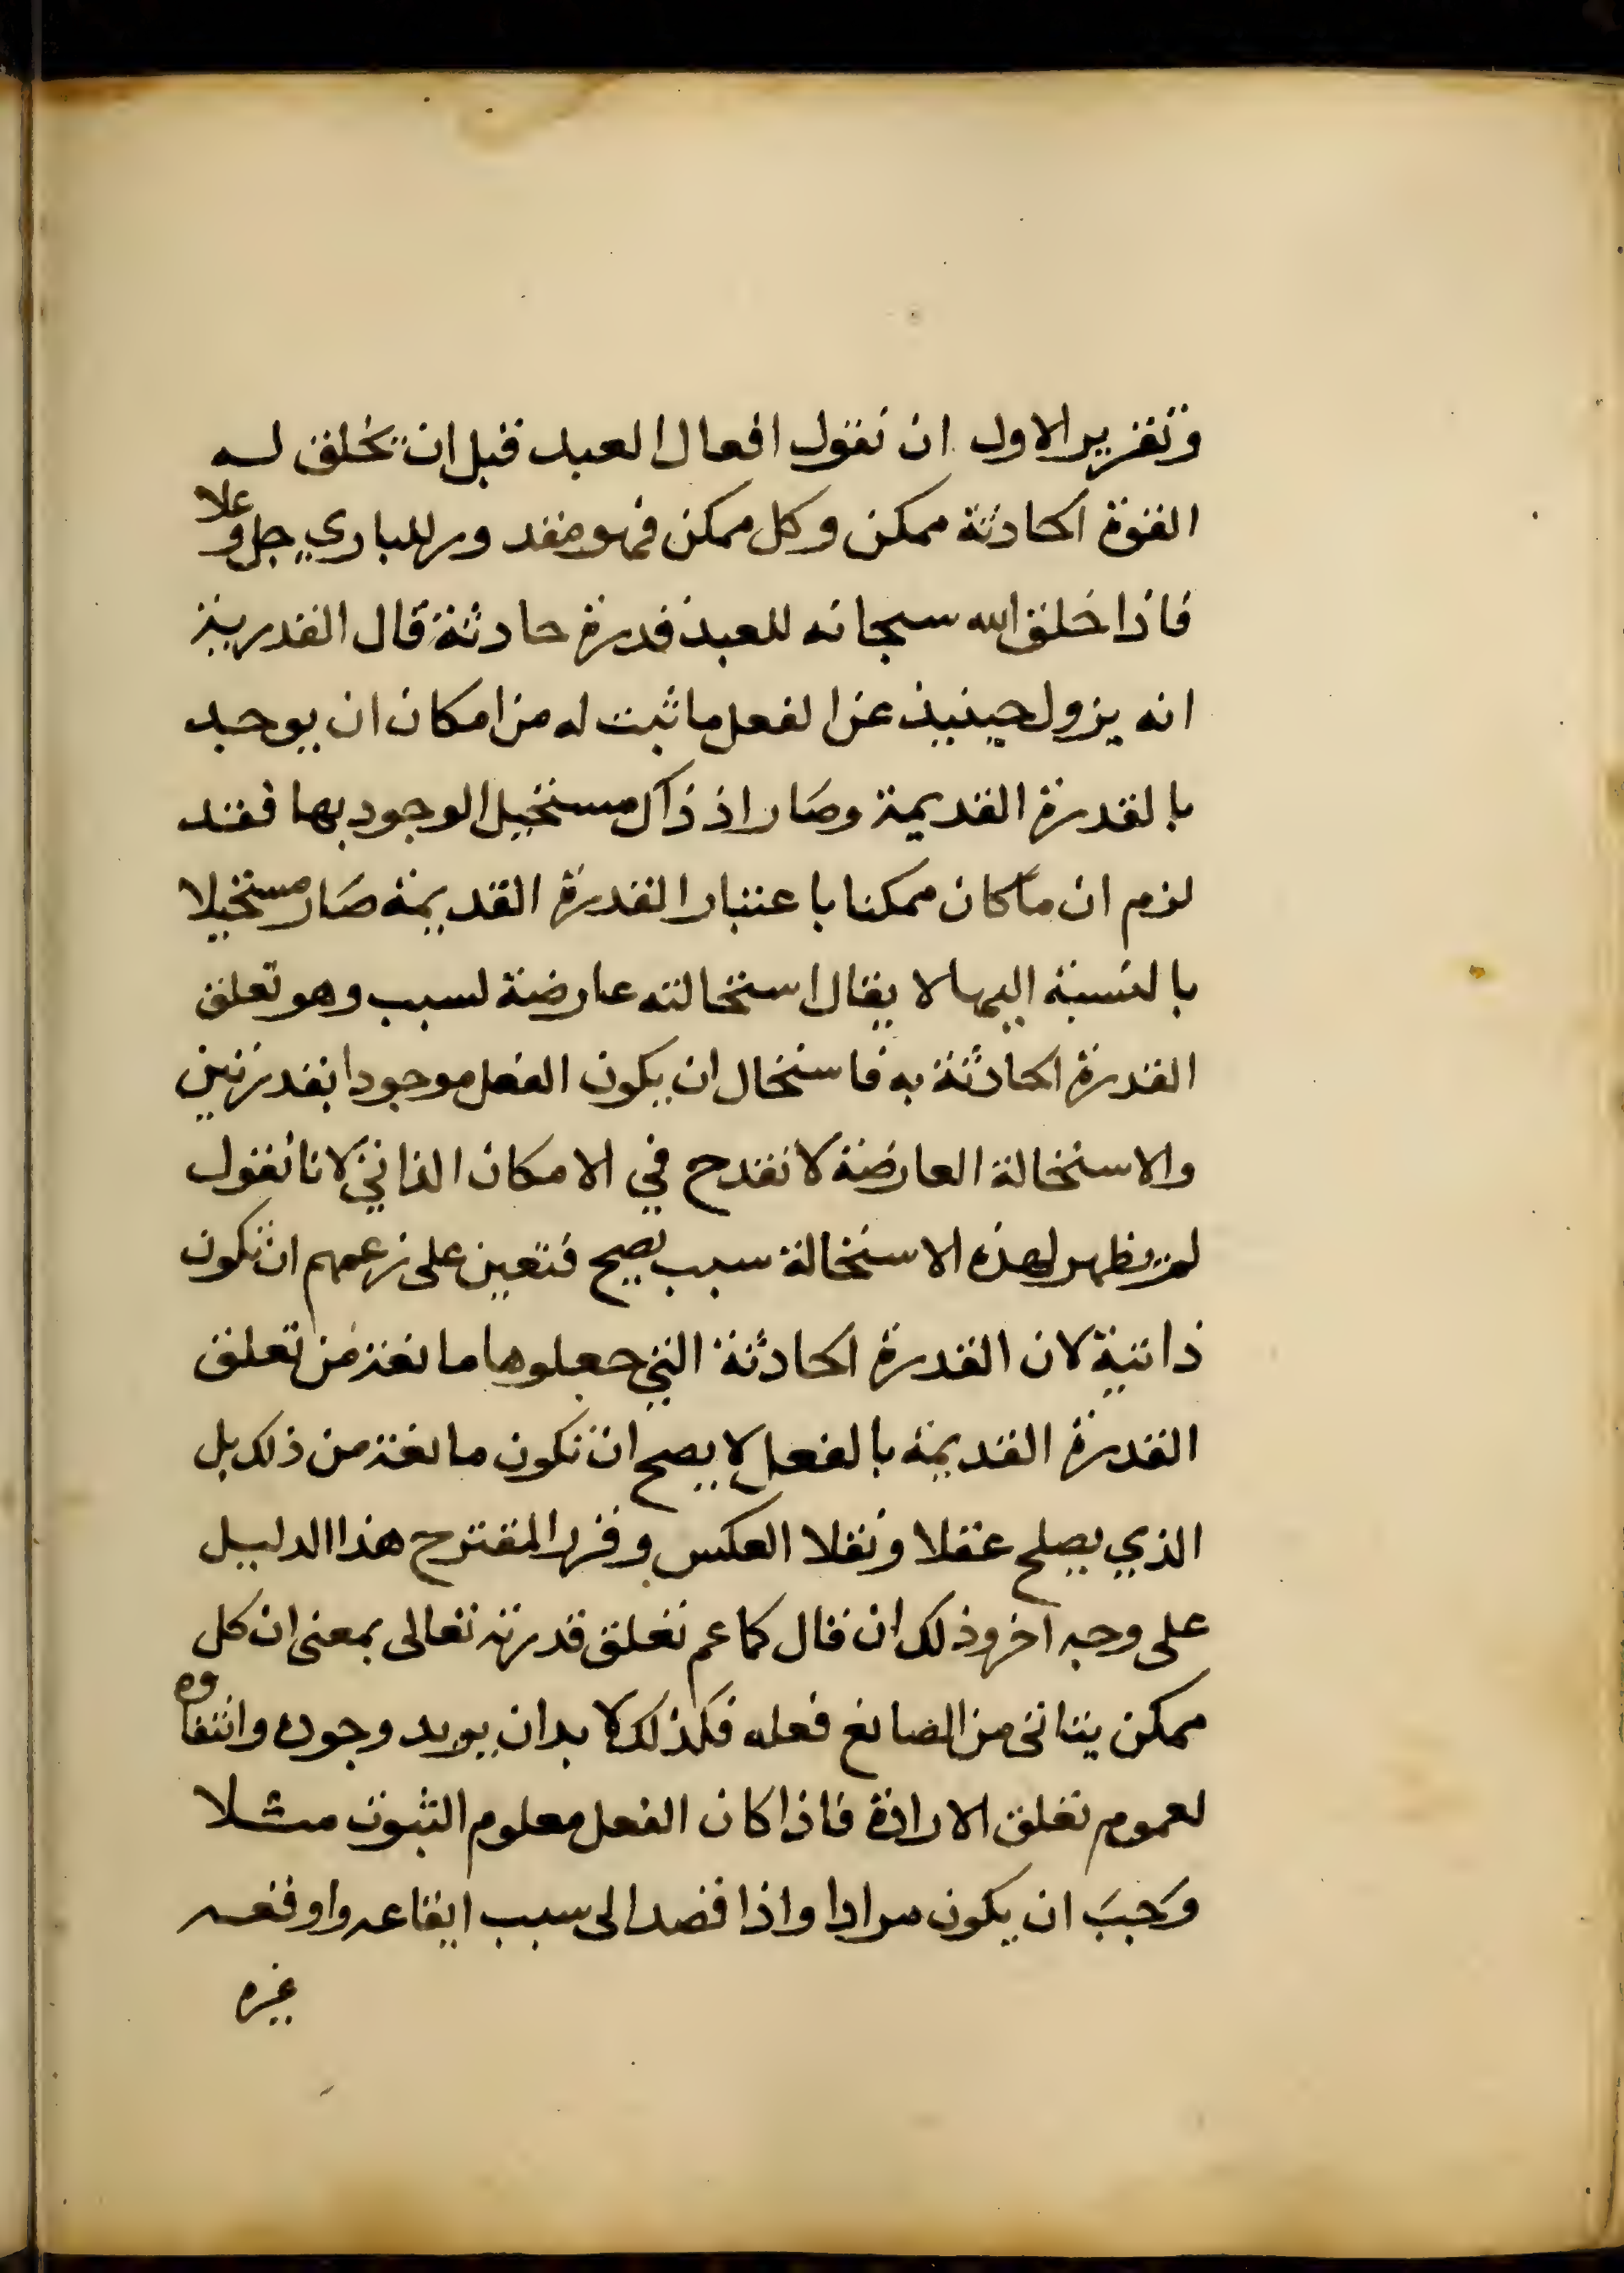 وتقرير الاول ان نقول افعال العبد قبل ان تخلق له
القوة الحادثة ممكن وكل ممكن فهو مقدور للباري جل وعلا
فاذا خلق الله سبحانه للعبد قدرة حادثة قال القدرية
انه يزول حينيذ عن الفعل ما ثبت له من امكان ان يوجد
بالقدرة القديمة وصار اذ ذاك مستحيل الوجود بها فقد
لزم ان ما كان ممكنا باعتبار القدرة القديمة صار مستحيلا
بالنسبة اليها لا يقال استحالته عارضة لسبب وهو تعلق
القدرة الحادثة به فاستحال ان يكون الفعل موجودا بقدرتين
والاستحالة العارضة لا تقدح في الامكان الذاتي لانا نقول
لم يظهر لهذه الاستحالة سبب يصح فتعين على زعمهم ان تكون
ذاتية لان القدرة الحادثة التي جعلوها مانعة من تعلق
القدرة القديمة بالفعل لا يصح ان تكون مانعة من ذلك بل
الذي يصلح عقلا ونقلا العكس وقرر المقترح هذا الدليل
على وجه اخر وذلك ان قال كما عم تعلق قدرته تعالى بمعنى ان كل
ممكن يتاتى من الصانع فعله فكذلك لا بد ان يريد وجوده وانتفاوه
لعموم تعلق الارادة فاذا كان الفعل معلوم الثبوت مثلا
وجب ان يكون مرادا واذا قصد الى سبب ايقاعه واوقعه
غيره